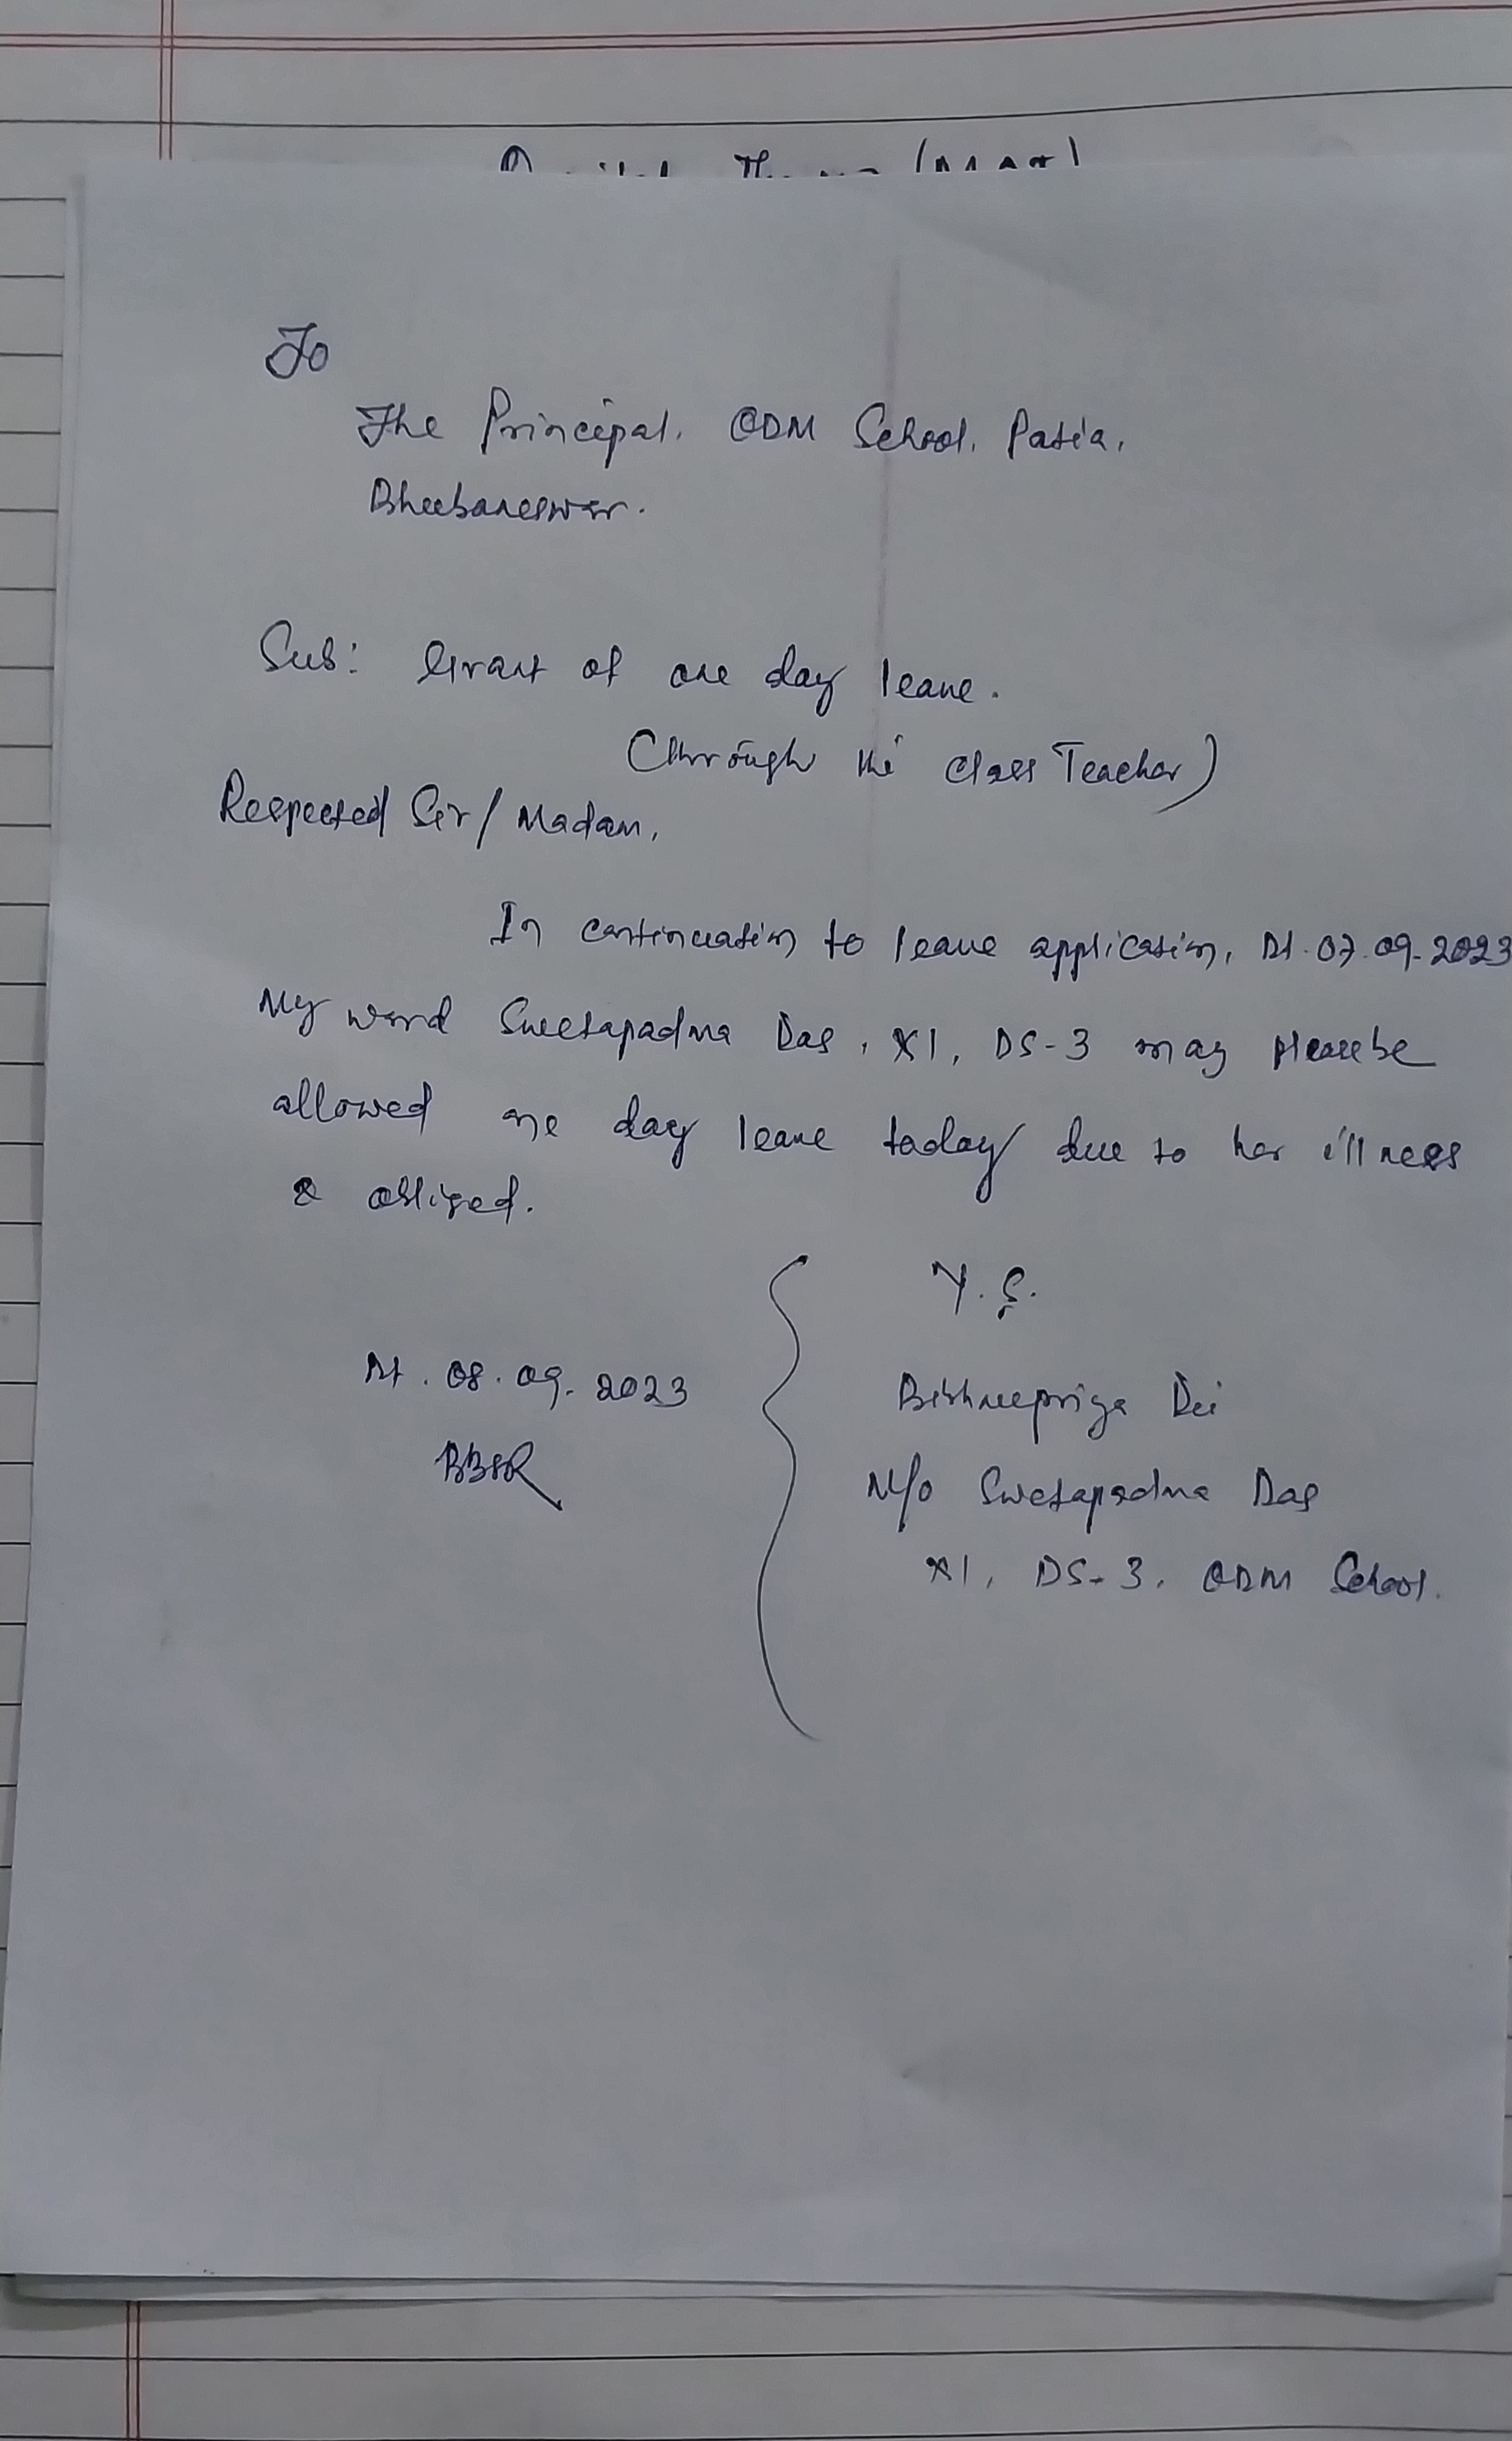 To
The Principal, ODM School, Patia,
Bhubaneswar.
Sub: Grant of one day leave.
(Through the Class Teacher)
Respected Sir/Madam,
In continuation to leave application, Dt. 07.09.2023
My ward Swetapadma Das, XI, DS-3 may please be
allowed one day leave today due to her illness
& obliged.
Y.S.
Dt. 08.09.2023
Bishnupriya Dei
BBSR
M/o Swetapadma Das
XI, DS-3, ODM School.